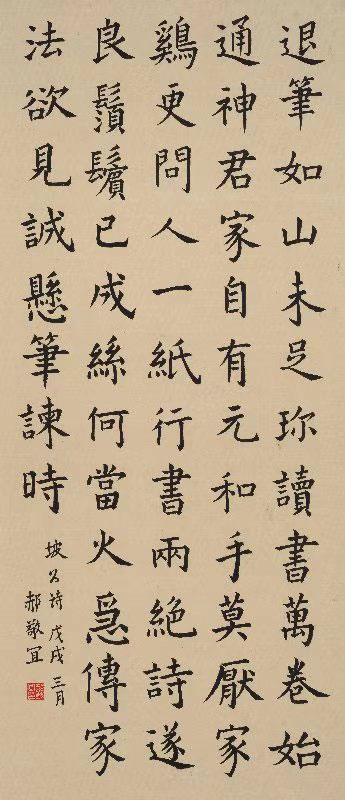 退筆如山未足珍讀書萬卷始
通神君家自有元和手莫厭家
鷄更問人一紙行書兩絶詩遂
良鬚鬢已成絲何當火急傳家
法欲見誠懸筆諫時
坡公詩戊戌三月
郝敬宜